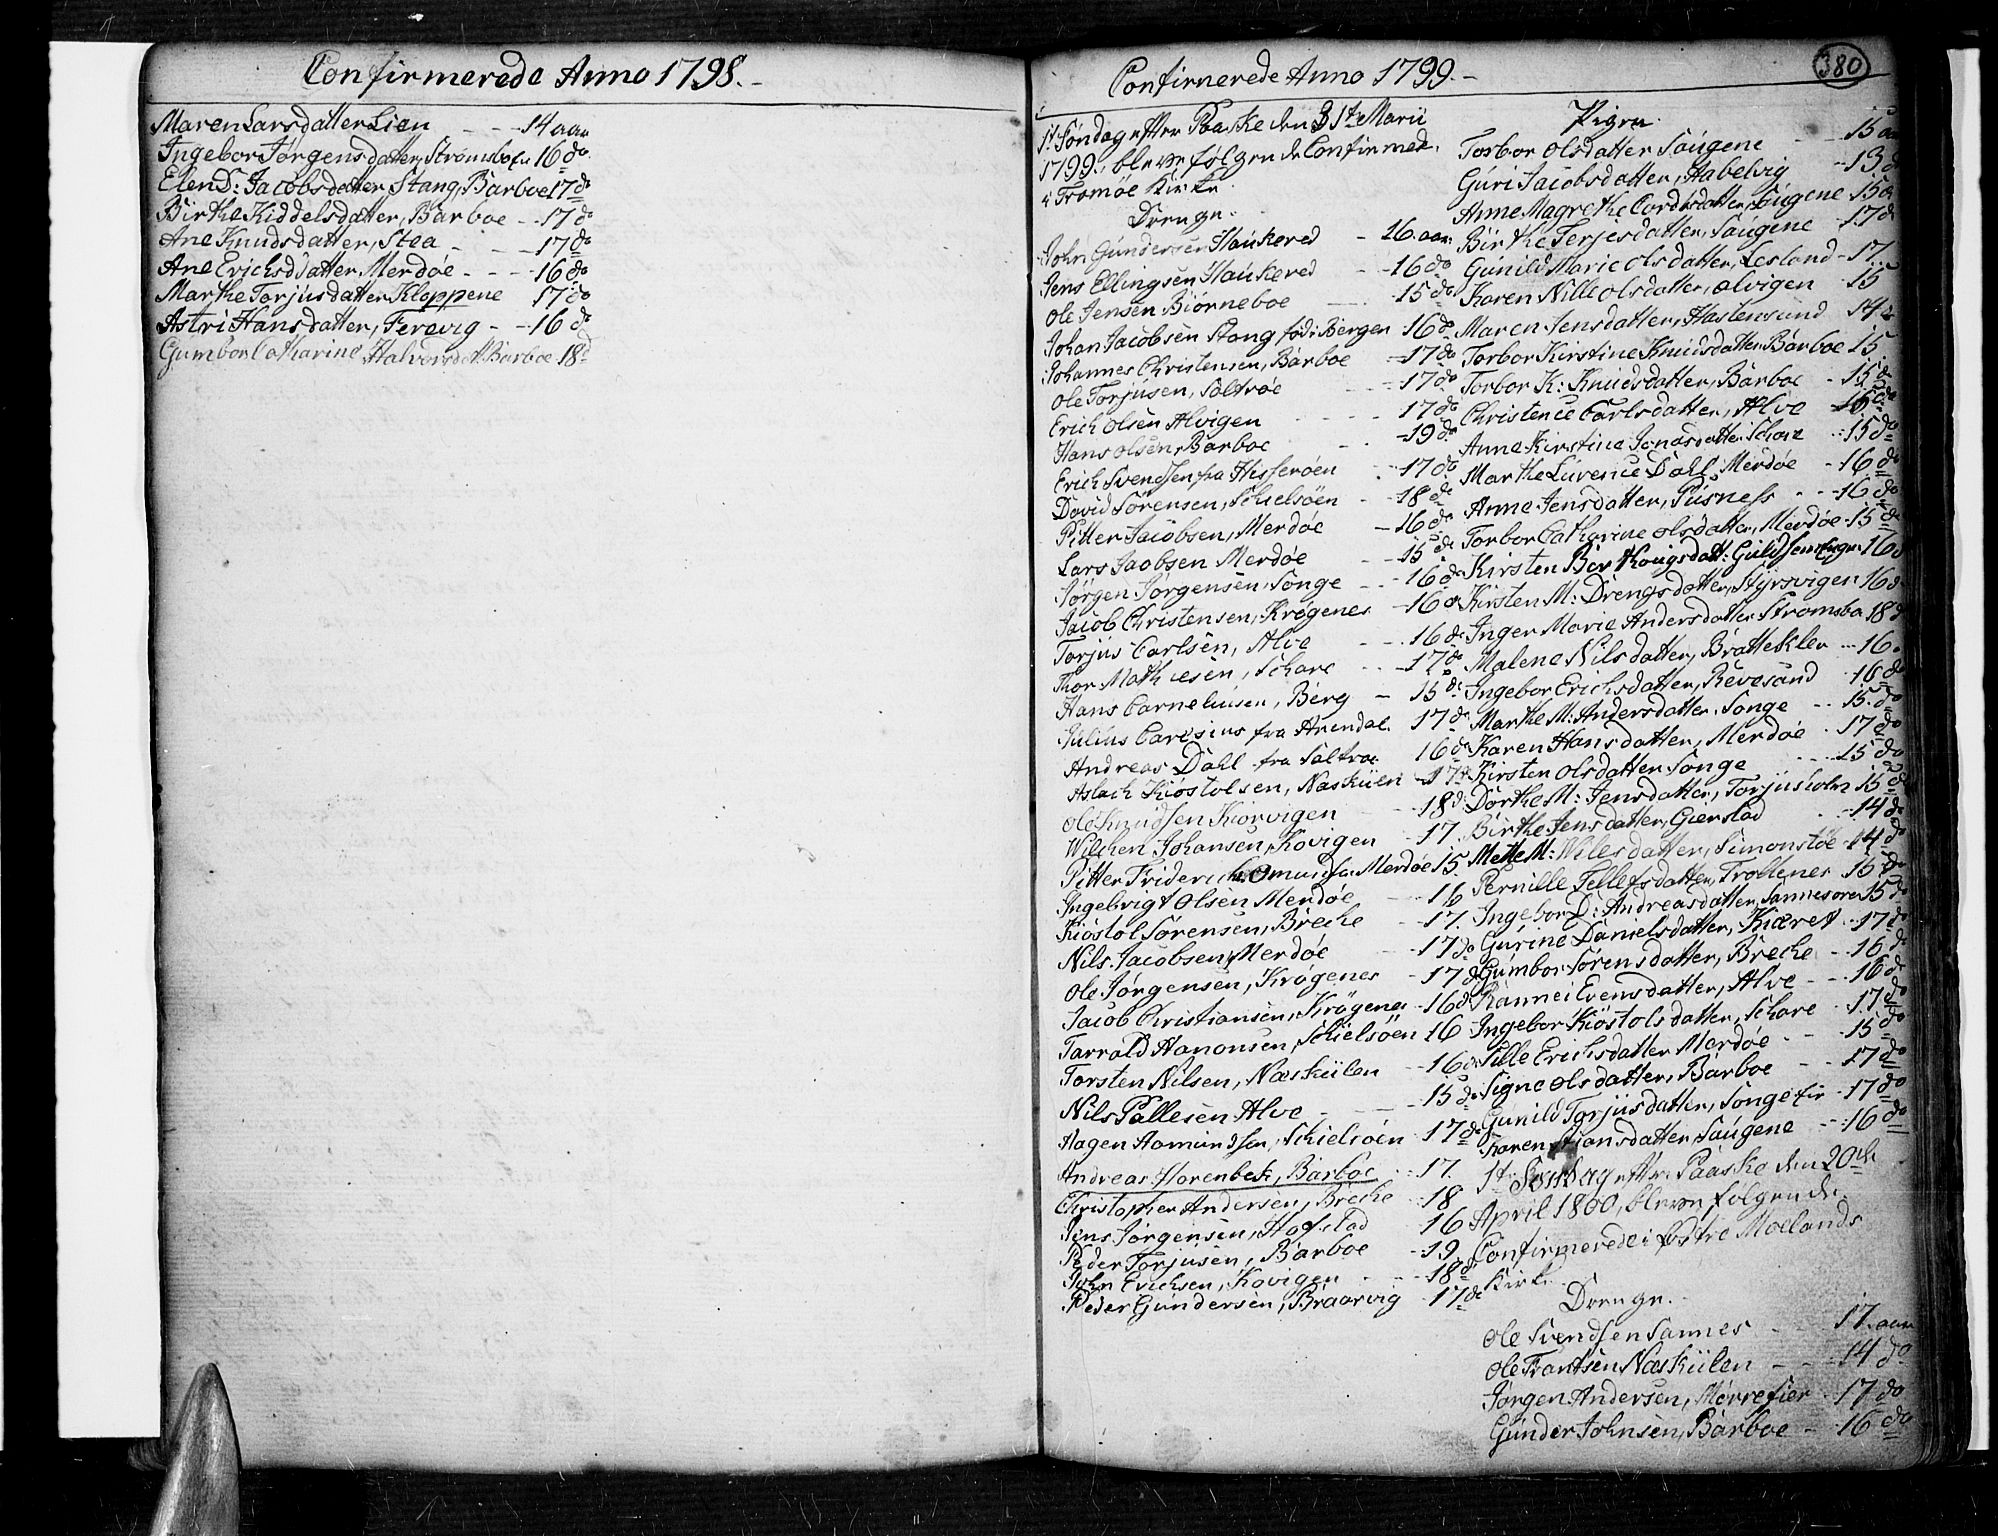 Confirmerede Anno 1798.
Maren Larsdatter Lien 14 aar
Ingebor Jørgensdatter, Strømsbo 16 do
Elen D: Jacobsdatter Stang, Barboe 17 do
Birthe Kiddelsdatter, Barboe 17 do
Ane Knudsdatter, Stea 17 do
Ane Erichsdatter Merdøe 16 do
Marthe Torjusdatter Kloppene 17 do
Astri Hansdatter, Fervig 16 do
Gumbor Catharine Halvorsdatt. Barboe 18 d
380
Confirmerede Anno 1799.
1st Søndag efter Paaske den 31te Martii
1799. bleve følgende Confirmed.
i Tromøe Kirke.
Drenge.
John Gundersen Haukered 16. aar
Jens Ellingsen Haukered 16 do
Ole Jensen Biørneboe 15 do
Johan Jacobsen Stang fød i Bergen 16 do
Johannes Christensen, Barboe 17 do
Ole Torjusen, Saltrøe 17 do
Erich Olsen Alvigen 17 do
Hans Olsen, Barboe 19 do
Erich Svendsen fra Hisserøen 17 do
David Sørensen, Schielsøen 18 do
Pitter Jacobsen, Merdøe 16 do
Lars Jacobsen Merdøe 15 do
Jørgen Jørgensen, Songe 16 do
Jacob Christensen, Krøgenes 16 d
Torjus Carlsen, Alve 16 do
Thor Mathiesen, Schare 17 do
Hans Corneliusen, Berg 15 do
Julius Caresius fra Arendal 17 do
Andreas Dahl fra Saltrøe 16 do
Aslach Kiøstolsen, Naskiilen 17 d
Ole Knudsen Kiorvigen 18 d
Wilchen Johansen, Kovigen 17.
Pitter Friderich Omundsen Merdøe 15.
Ingebrigt Olsen Merdøe 16
Kiøstol Sørensen, Breche 17.
Nils Jacobsen, Merdøe 17 do
Ole Jørgensen, Krøgenes 17 d
Jacob Christiansen, Krøgenes 16 d
Tarrald Aanonsen, Schielsøen 16
Torsten Nilsen, Næskiilen 16 d
Nils Pallesen Alve 15 do
Aagen Aamundsen, Schielsøen 17 do
Andreas Horenbek, Barboe 17.
Christopher Andersen, Breche 18
Jens Jørgensen, Hofstad 16
Peder Torjusen, Barboe 19.
John Erichsen, Kovigen 18 d
Peder Gundersen, Braarvig 17 do
Pigen.
Torbor Olsdatter Saugene 15 aar
Guri Jacobsdatter, Habelvig 13 d
Anne Magrethe Cordtsdatter, Saugene 15 d
Birthe Terjesdatter, Saugene 17 d
Gunild Marie Olsdatter, Lesland 17.
Karen Nille Olsdatter, Alvigen 15
Maren Jensdatter, Hastensund 14
Torbor Kirstine Knudsdatter Barboe 15
Torbor K: Knudsdatter, Barboe 15 d
Christence Carlsdatter, Alve 16 do
Anne Kirstine Jonasdatter Schare 15 do
Marthe Lurence Dahl, Merdøe 16 do
Anne Jensdatter, Pusness 16 do
Torbor Catharine Olsdatter, Merdøe 15 do
Kirsten 16 d
Kirsten M: Drengsdatter, Styrsvigen 16 d
Inger Marie Andersdatter Strømsbo 18 d
Malene Nilsdatter, Bratteklev 16.
Ingebor Erichsdatter, Revesand 16 do
Marthe M: Andersdatter, Songe 15. do
Karen Hansdatter, Merdøe 17 do
Kirsten Olsdatter Songe 15 do
Dorthe M: Jensdatter, Torjusholm 15 d
Birthe Jensdatter, Gierstad 14 d
Mette M: Nilsdatter, Simonstøe 14 do
Pernille Tellefsdatter, Trollenes 15 do
Ingebor D: Andreasdatter, Sannesoren 15 do
Gurine Danielsdatter, Kiæret 17 do
Gumbor Sørensdatter, Breche 16 do
Rannei Evensdatter, Alve 16 do
Ingebor Kiøstolsdatter, Schare 17 do
Sille Erichsdatter Merdøe 15 do
Signe Olsdatter, Barboe 17 do
Gunild Torjusdatter, Songe 17 do
Karen Hansdatter, Saugene 16 do
1st Søndag efter Paaske den 20de
April 1800, bleve følgende
Confirmerede i Østre Moelands
Kirke.
Drenge.
Ole Svendsen Sannes 17. aar
Ole Frantsen Næskiilen 14 do
Jørgen Andersen, Mørrefier 17 do
Gunder Johnsen, Barboe 16 do